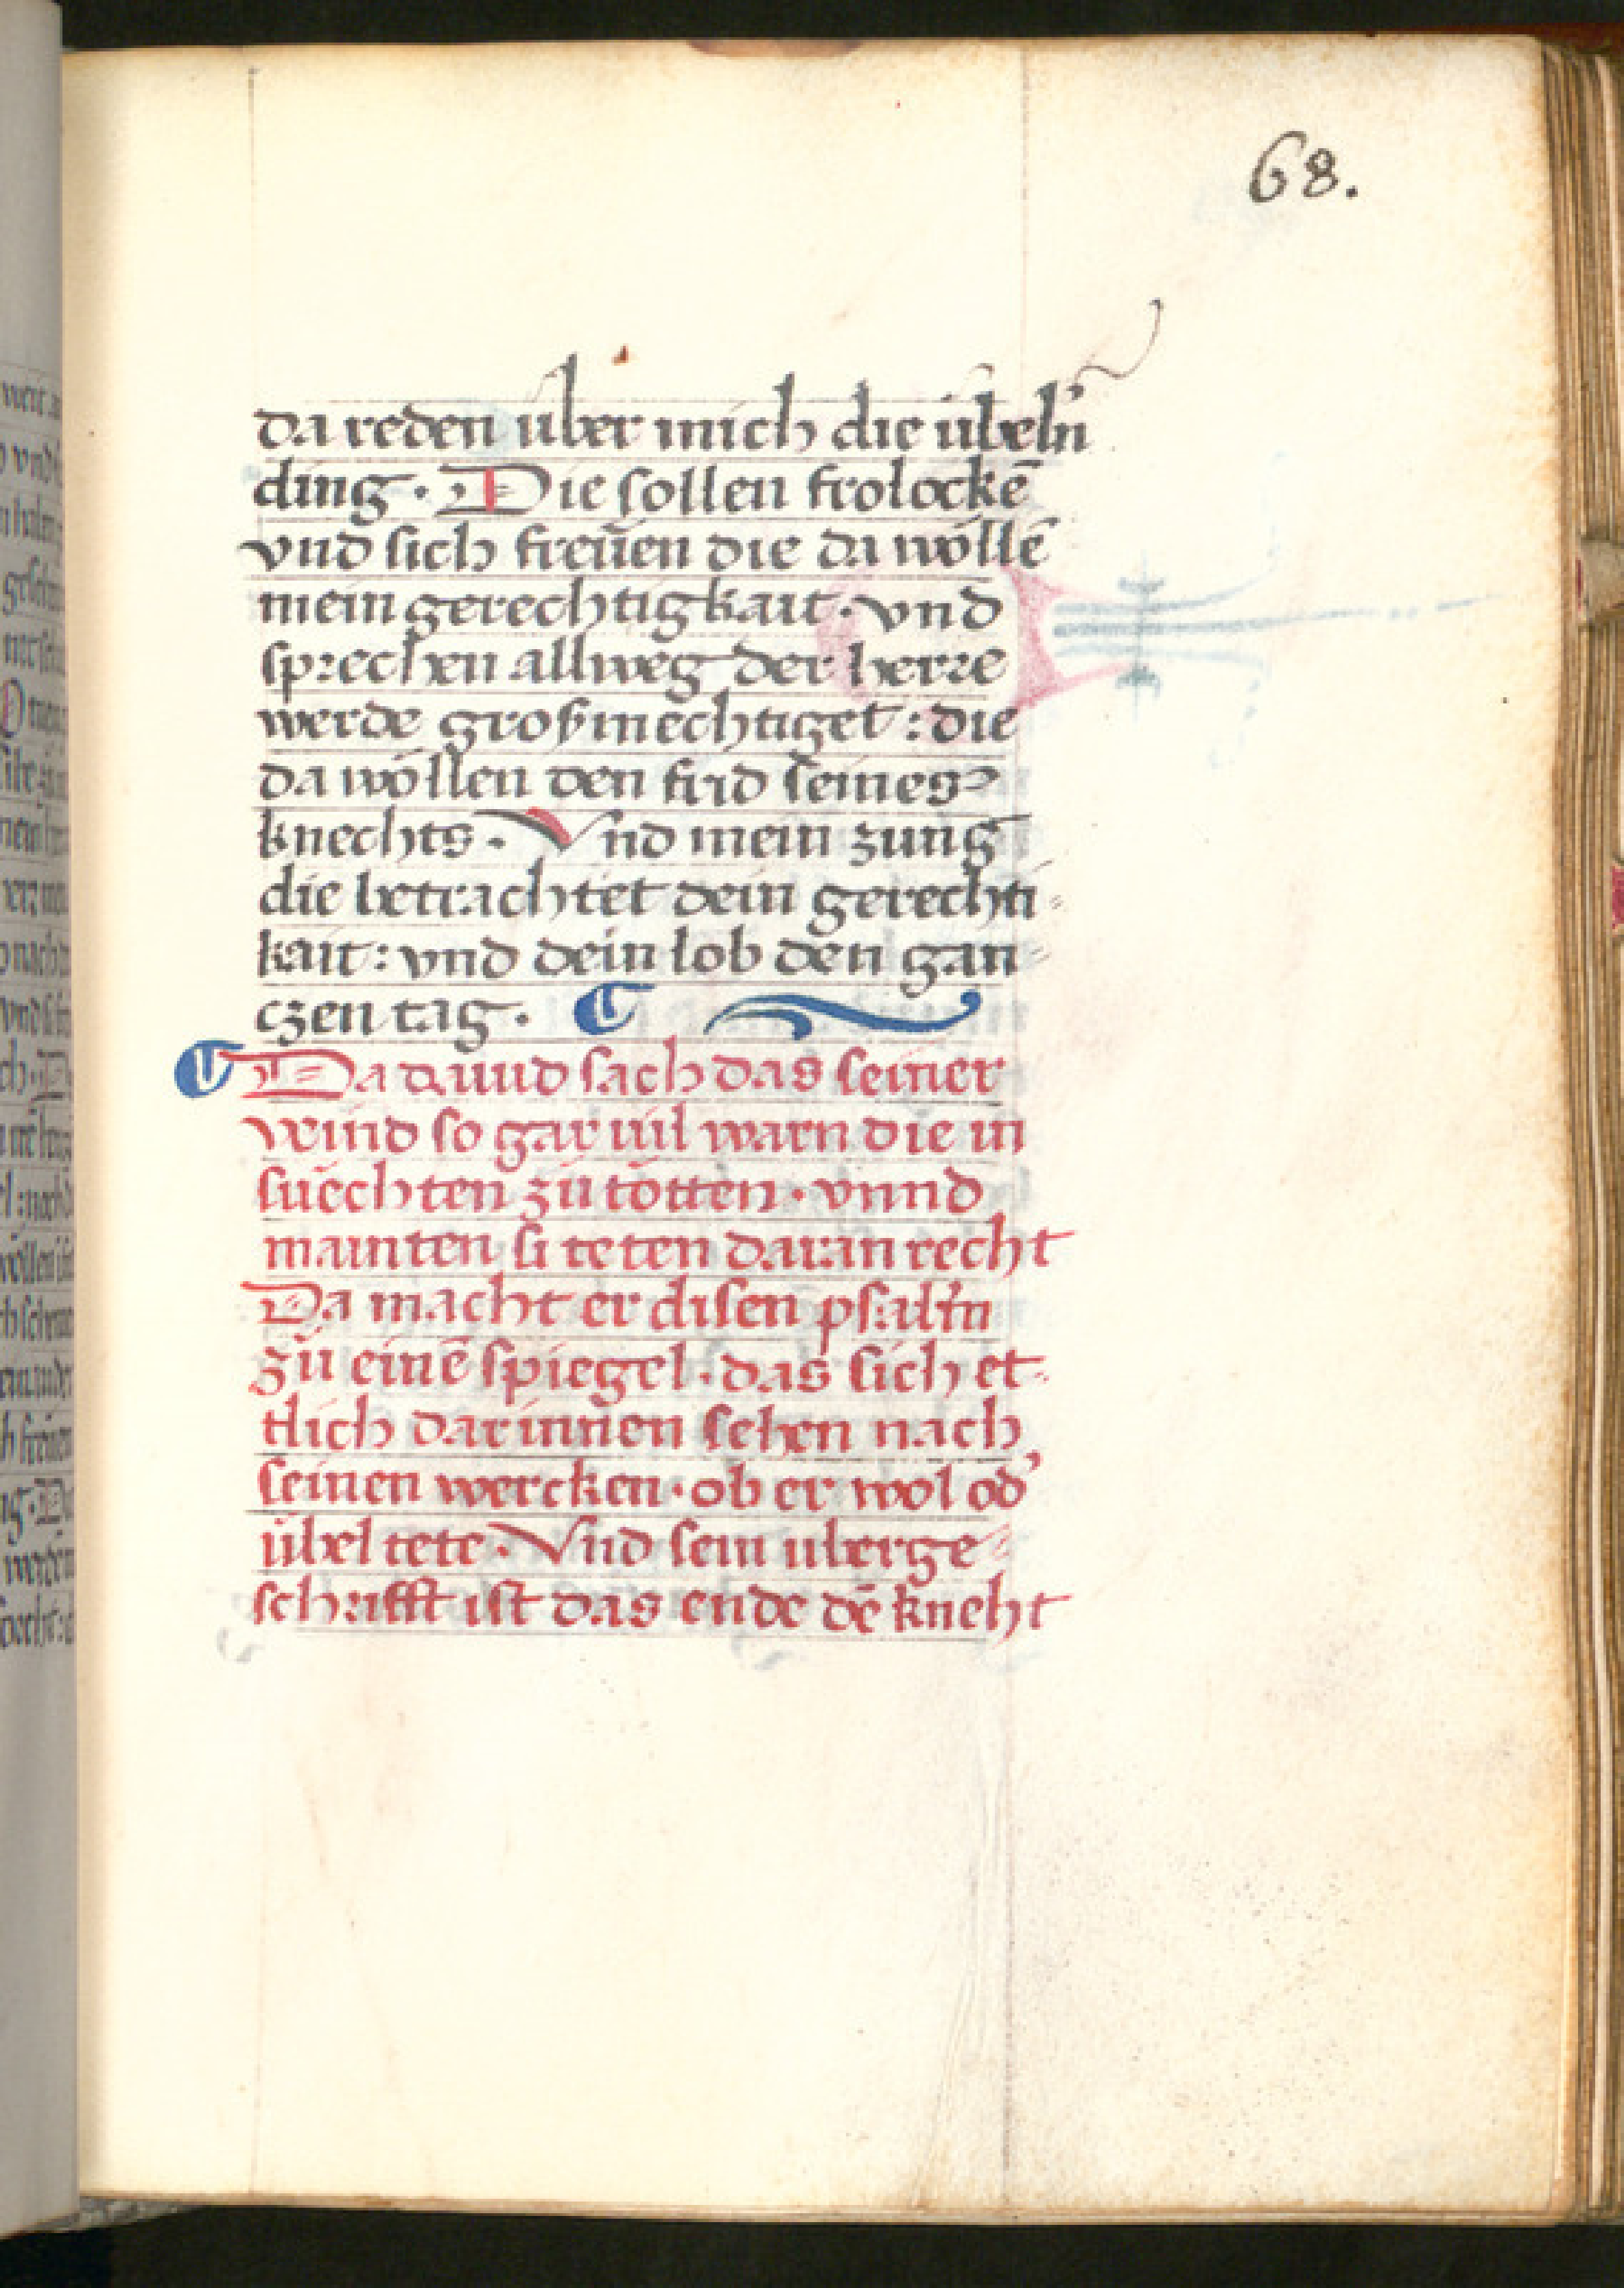 68.
da reden uber mich die übeln̄
ding. Die sollen frolockē
vnd sich freüen die da wöllē
mein gerechtigkait. vnd
sprechen allweg der herre
werde großmechtiget: die
da wöllen den frid seines
knechts. Vnd mein zung
die betrachtet dein gerechti-
kait: vnd dein lob den gan-
czen tag.
Da dauid sach das seiner
veind so gar uil warn die in
suechten zů tötten. vnnd
mainten si teten daran recht
Da macht er disen psalm̄
zů einē spiegel. das sich et-
tlich darinnen sehen nach
seinen wercken. ob er wol od'
übel tete. Vnd sein uberge-
schrifft ist das ende dē kneht